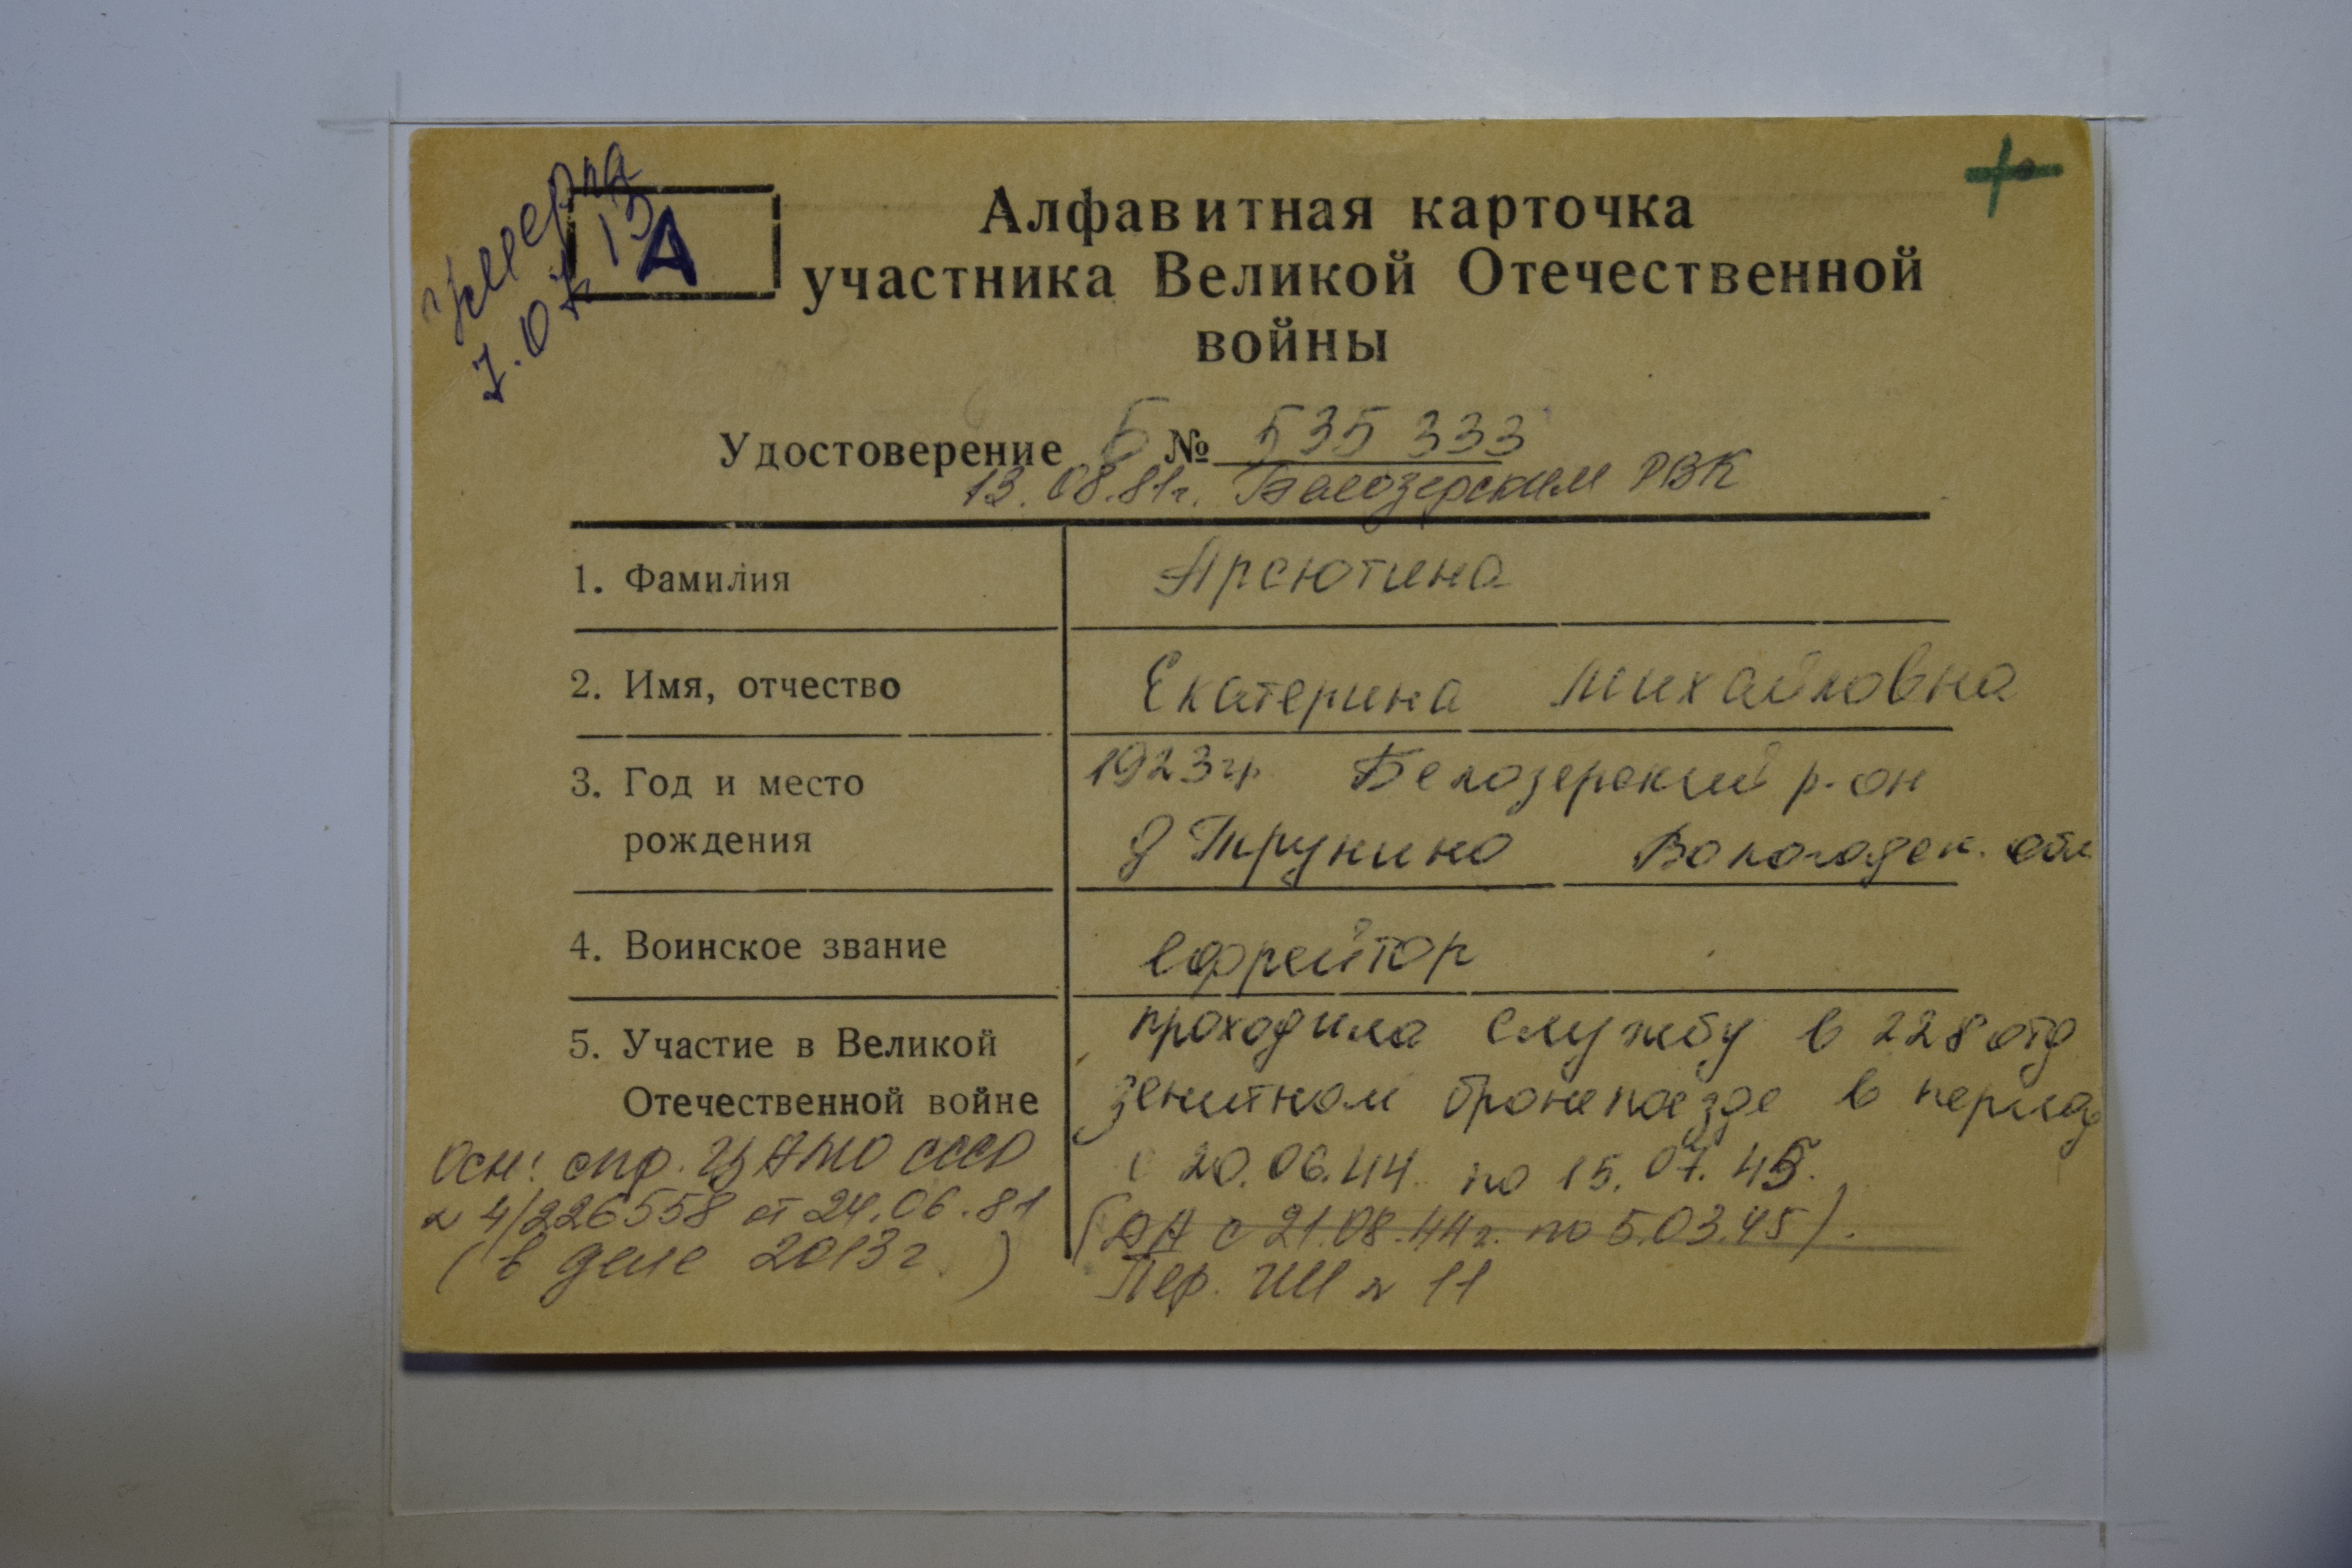 умерла
7.07.13
А
Алфавитная карточка
участника Великой Отечественной
войны
Удостоверение Б № 535 333
13.08.81г. Белозерским РВК
1. Фамилия Арсютина
2. Имя, отчество Екатерина Михайловна
3. Год и место 1923гр Белозерский р-он
рождения д Трунино Вологодск. обл
4. Воинское звание ефрейтор
5. Участие в Великой проходила службу в 228 отд
Отечественной войне зенитном бронепоезде в период
с 20.06.44 по 15.07.45.
(ДА с 21.08.44г. по 5.03.45).
Пер. №11
Осн: спр. ЦАМО СССР
№ 4/226558 от 24.06.81
(в деле 2013г)